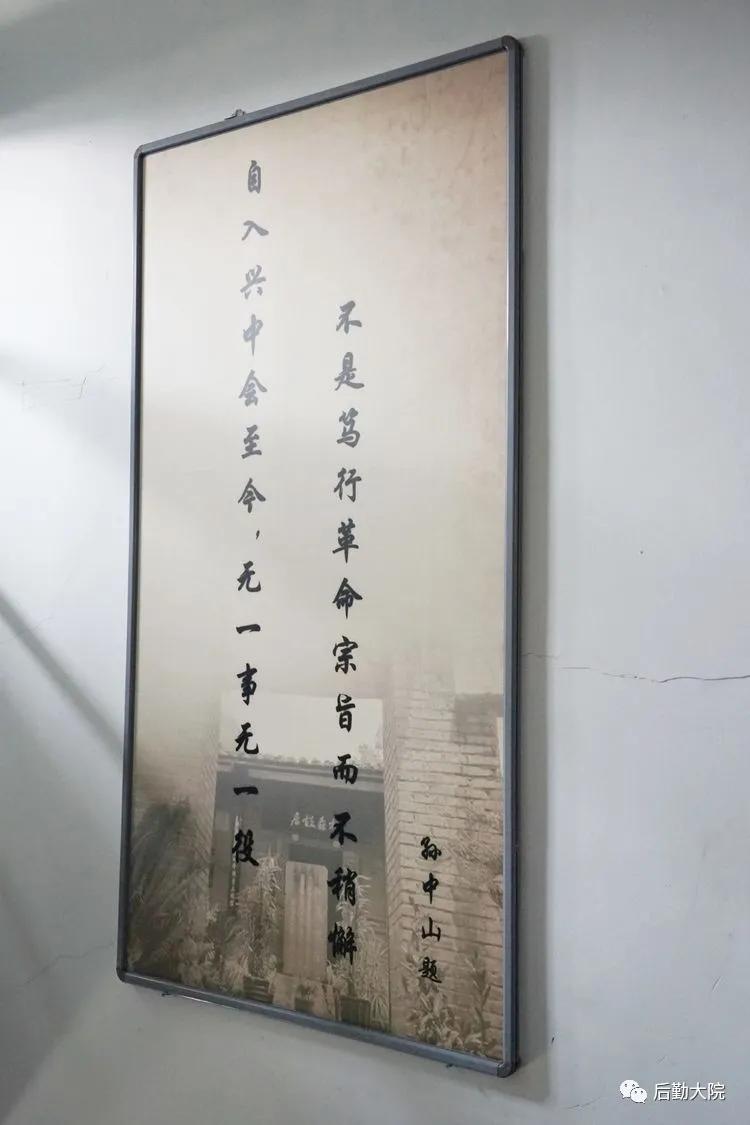 自入兴中会至今，无一事无一役
不是笃行革命宗旨而不稍懈
孙中山题
后勤大院